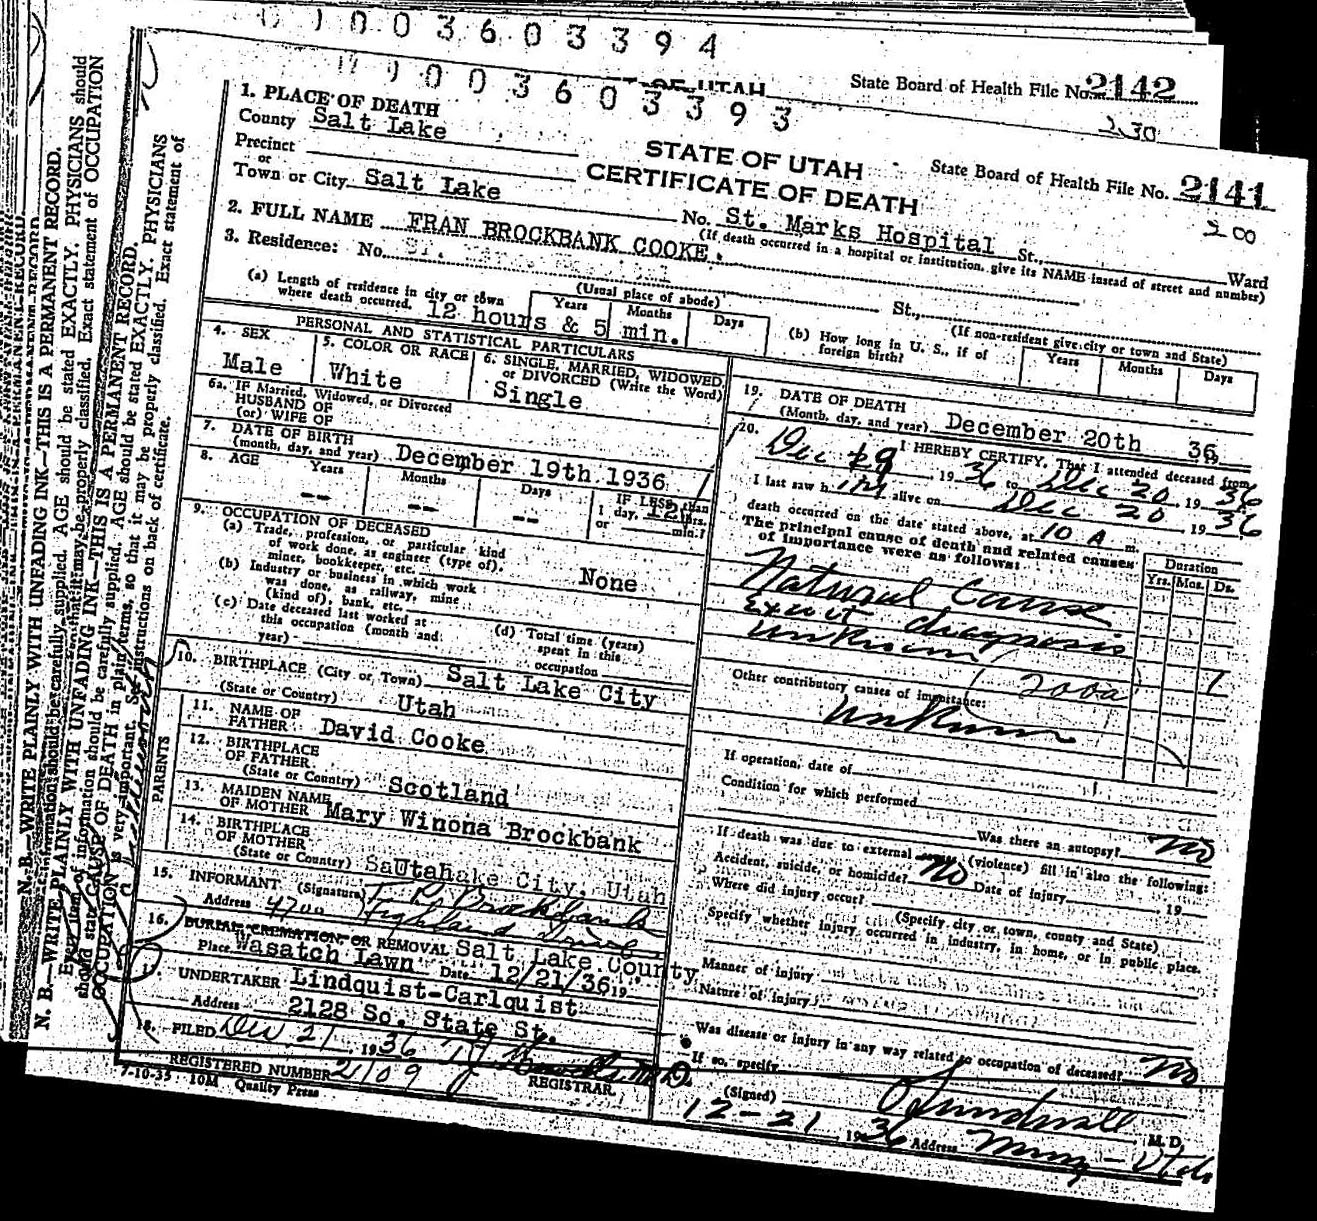 1 0 0 3 6 0 3 3 9 4
State Board of Health File No. 2142
OF UTAH
2 30
1 0 0 3 6 0 3 3 9 3
STATE OF UTAH
CERTIFICATE OF DEATH
State Board of Health File No. 2141
200
1. PLACE OF DEATH
County Salt Lake
Precinct
or
Town or City Salt Lake No. St. Marks Hospital St., Ward
(If death occurred in a hospital or institution, give its NAME instead of street and number)
2. FULL NAME FRAN BROCKBANK COOKE.
3. Residence: No. St., 
(Usual place of abode) (If non-resident give city or town and State)
(a) Length of residence in city or town where death occurred. 12 hours & 5 min. Years Months Days
(b) How long in U. S., if of foreign birth? Years Months Days
PERSONAL AND STATISTICAL PARTICULARS
4. SEX Male
5. COLOR OR RACE White
6. SINGLE, MARRIED, WIDOWED, or DIVORCED (Write the Word) Single
6a. IF Married, Widowed, or Divorced
HUSBAND OF
(or) WIFE OF
7. DATE OF BIRTH
(month, day, and year) December 19th 1936
8. AGE Years -- Months -- Days -- IF LESS than 1 day, 12 hrs. or min.?
9. OCCUPATION OF DECEASED
(a) Trade, profession, or particular kind
of work done, as engineer (type of),
miner, bookkeeper, etc. None
(b) Industry or business in which work
was done, as railway, mine
(kind of), bank, etc.
(c) Date deceased last worked at
this occupation (month and
year)
(d) Total time (years)
spent in this
occupation
10. BIRTHPLACE (City or Town) Salt Lake City
(State or Country) Utah
PARENTS
11. NAME OF
FATHER David Cooke
12. BIRTHPLACE
OF FATHER
(State or Country) Scotland
13. MAIDEN NAME
OF MOTHER Mary Winona Brockbank
14. BIRTHPLACE
OF MOTHER
(State or Country) Utah Lake City, Utah
15. INFORMANT (Signature) F R Brockbank
Address 4700 Highland Drive
16. BURIAL, CREMATION, OR REMOVAL Salt Lake County
Place Wasatch Lawn Date 12/21/36 19
17. UNDERTAKER Lindquist-Carlquist
Address 2128 So. State St.
18. FILED Dec 21, 1936
REGISTERED NUMBER 2109 REGISTRAR.
7-10-35 10M Quality Press
19. DATE OF DEATH
(Month, day, and year) December 20th 36 19
20. I HEREBY CERTIFY, That I attended deceased from
Dec 19, 1936 to Dec 20, 1936
I last saw him alive on Dec 20 1936
death occurred on the date stated above, at 10 A m.
The principal cause of death and related causes
of importance were as follows:
Duration
Yrs. Mos. Ds.
Natural Cause
Exact diagnosis
unknown
200a
Other contributory causes of importance:
Unknown
If operation, date of
Condition for which performed
Was there an autopsy? No
If death was due to external (violence) fill in also the following:
Accident, suicide, or homicide? No Date of injury 19
Where did injury occur?
(Specify city or town, county and State)
Specify whether injury occurred in industry, in home, or in public place.
Manner of injury
Nature of injury
Was disease or injury in any way related to occupation of deceased? No
If so, specify
(Signed) Sundwall, M. D.
12-21 1936 Address Murray - Utah
N. B.—WRITE PLAINLY WITH UNFADING INK—THIS IS A PERMANENT RECORD.
Every item of information should be carefully supplied. AGE should be stated EXACTLY. PHYSICIANS
should state CAUSE OF DEATH in plain terms, so that it may be properly classified. Exact statement of
OCCUPATION is very important. See instructions on back of certificate.